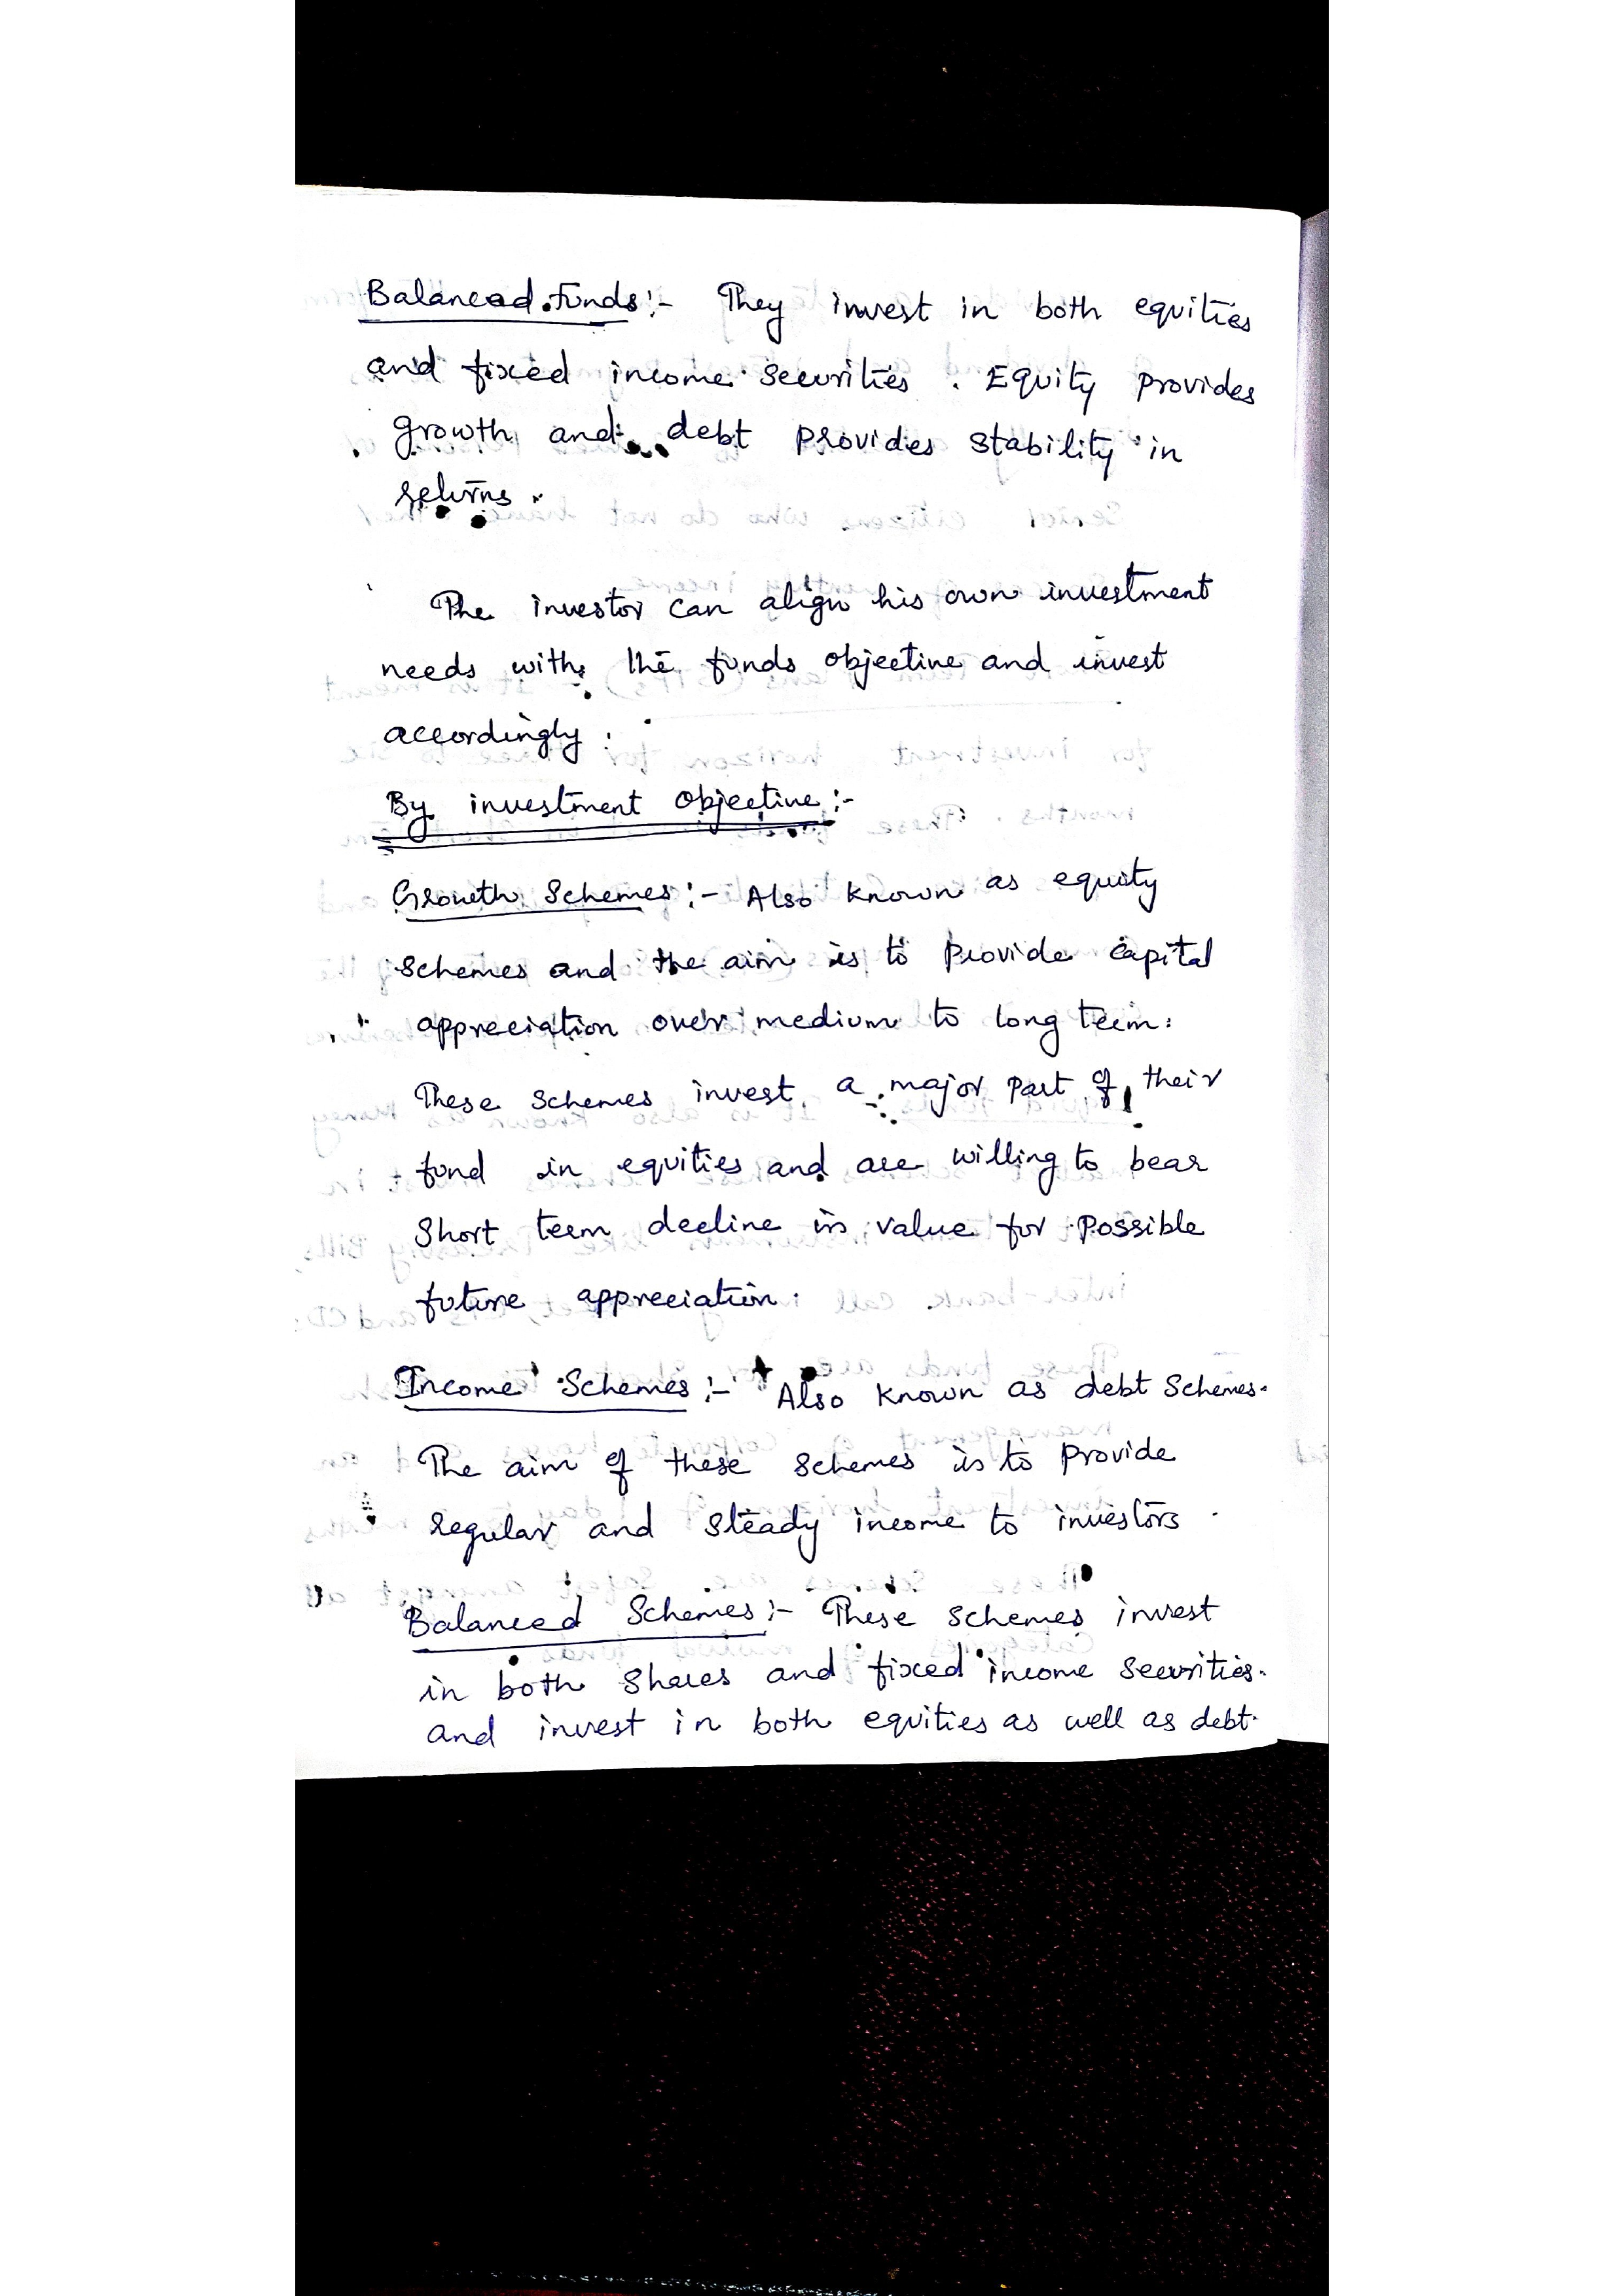 Balanced Funds:- They invest in both equities
and fixed income securities. Equity provides
growth and debt provides stability in
returns.
The investor can align his own investment
needs with the funds objective and invest
accordingly.
By investment objective:-
Growth Schemes:- Also known as equity
schemes and the aim is to provide capital
appreciation over medium to long term.
These schemes invest a major part of their
fund in equities and are willing to bear
short term decline in value for possible
future appreciation.
Income Schemes:- Also known as debt schemes.
The aim of these schemes is to provide
regular and steady income to investors.
Balanced Schemes:- These schemes invest
in both shares and fixed income securities.
and invest in both equities as well as debt.